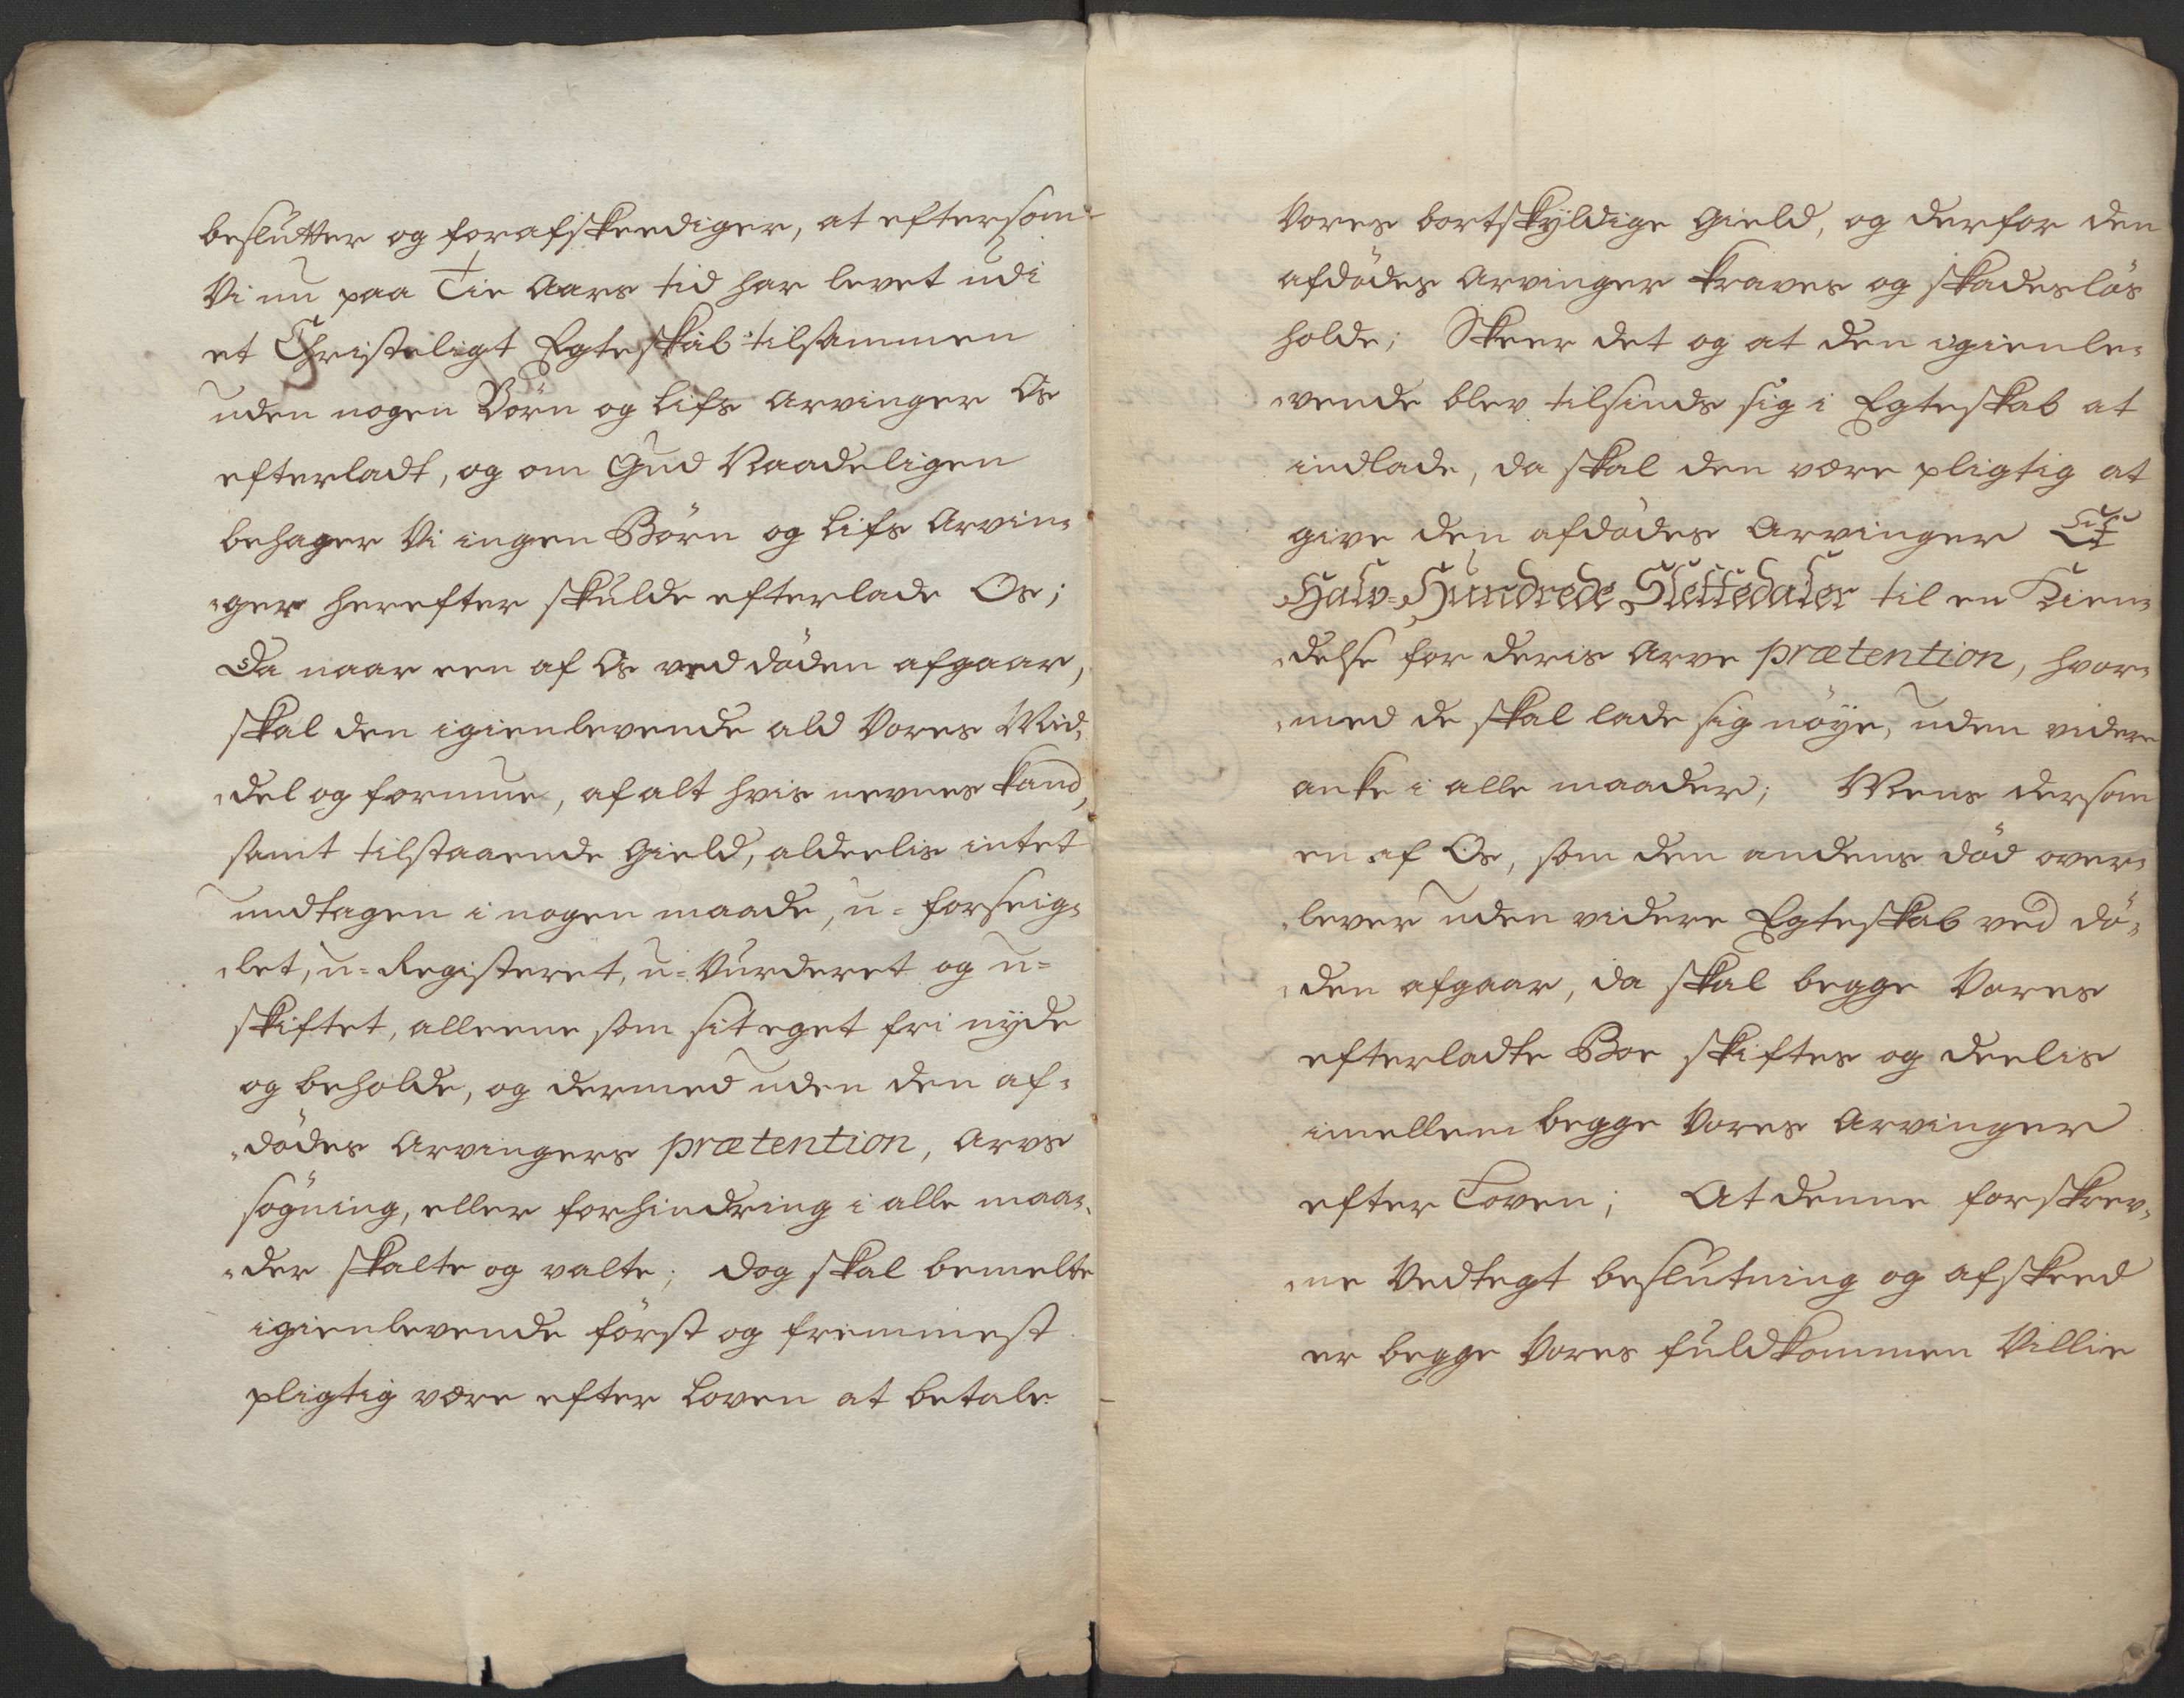 beslutter og forafskeediger, at eftersom
Vi nu paa Tie Aars tid har levet udi
et Christeligt Egteskab tilsammen
uden nogen Börn og Lifs Arvinger Os
efterladt, og om Gud Naadeligen
behager Vi ingen Börn og Lifs Arvin-
ger herefter skulde efterlade Os;
Da naar een af Os ved döden afgaar,
skal den igienlevende ald Vores Mid-
del og formue, af alt hvis nevnes kand,
samt tilstaaende Gield, aldeelis intet
undtagen i nogen maade, u-forseig-
let, u-Registeret, u-Vurderet og u-
skiftet, alleene som sit eget fri nyde
og beholde, og dermed uden den af-
dödes Arvingers prætention, Arvs
sögning, eller forhindring i alle maa-
der skalte og valte; dog skal bemelte
igienlevende först og fremmest
pligtig være efter Loven at betale
Vores bortskyldige Gield, og derfor den
afdödes Arvinger kraves og skadeslös
holde; Skeer det og at den igienle-
vende blev tilsinds sig i Egteskab at
indlade, da skal den være pligtig at
give den afdödes Arvinger Et
Halv-Hundrede Slettedaler til en Kien-
delse for deris Arve prætention, hvor-
med de skal lade sig nöye, uden videre
anke i alle maader; Mens dersom
en af Os, som den andens död over-
lever uden videre Egteskab ved dö-
den afgaar, da skal begge Vores
efterladte Boe skiftes og deelis
imellem begge Vores Arvinger
efter Loven; At denne forskrev-
ne Vedtegt beslutning og afskeed
er begge Vores fuldkommen Villie